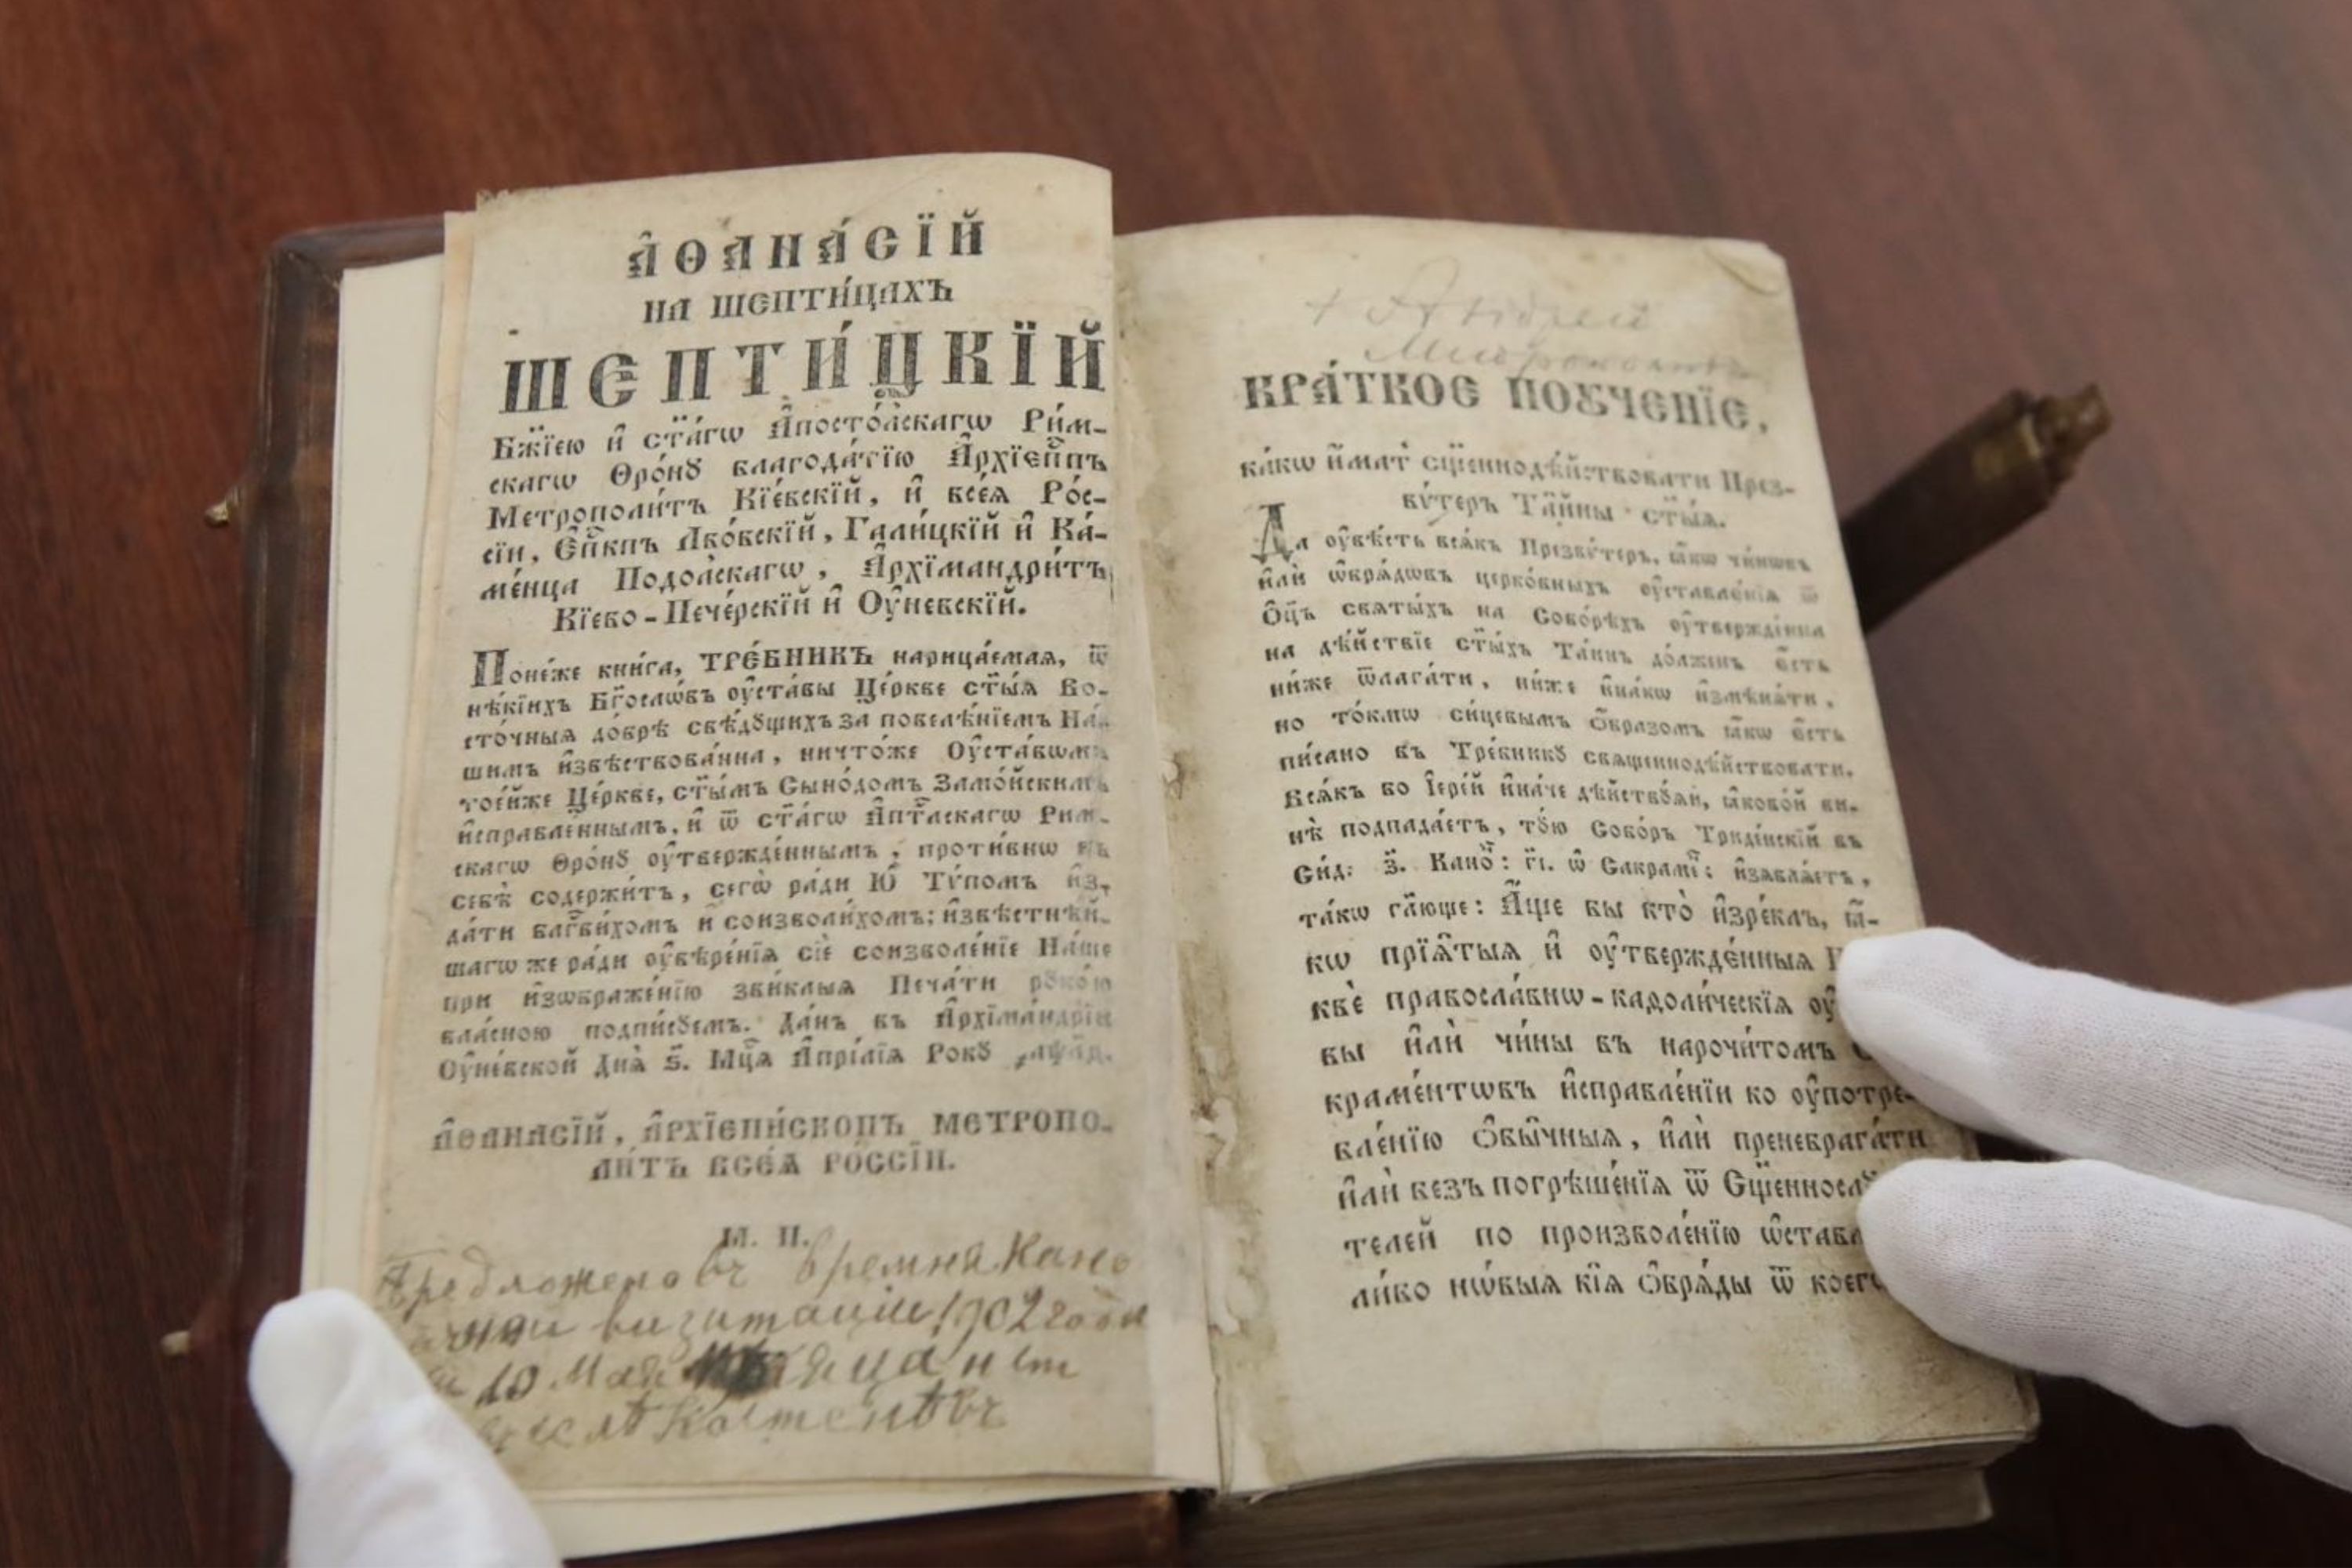 А҆ѲАНА́СЇЙ
НА ШЕПТИ́ЦАХЪ
ШЕПТИ́ЦКЇЙ
Бж҃їею и҆ ст҃а́гѡ А҆посто́лскагѡ Ри́м-
скагѡ Ѳро́нꙋ благода́тїю А҆рхїеп҃пъ
Метрополи́тъ Кїе́вскїй, и҆ всеѧ̀ Ро́с-
сїи, Е҆п҃кпъ Лво́вскїй, Гали́цкїй и҆ Ка́-
ме́нца Подо́лскагѡ, А҆рхїмандри́тъ
Кїево-Пече́рскїй и҆ Оу҆не́вскїй.
Поне́же кни́га, ТРЕ́БНИКЪ нарица́емая, ѿ
нѣ́кїихъ Бг҃осло́въ оу҆ста́вы Це́ркве ст҃ы́ѧ Во-
сто́чныѧ до́брѣ свѣ́дꙋщихъ за повелѣ́нїемъ На́-
шимъ и҆звѣствова́нна, ничто́же Оу҆ста́вѡмъ
тое́йже Це́ркве, ст҃ы́мъ Сѵно́домъ Замо́йскимъ
и҆справле́ннымъ, и҆ ѿ ст҃а́гѡ А҆пт҃лскагѡ Рим-
скагѡ Ѳро́нꙋ оу҆твержде́ннымъ, проти́внѡ въ
себѣ̀ содержи́тъ, сегѡ̀ ра́ди Ю҆ Тѵ́помъ и҆з-
да́ти блгⷭ҇ви́хомъ и҆ соизво́лихомъ; и҆звѣстнѣ́й-
шагѡ же ра́ди оу҆вѣре́нїѧ сїѐ соизволе́нїе На́ше
при и҆зѡбраже́нїю зви́клыѧ Печа́ти рꙋко́ю
вла́сною подпи́сꙋемъ. Да́нъ въ А҆рхїма́ндрїи
Оу҆не́вской Днѧ̀ ѕ҃. Мцⷭ҇а А҆прі́лїѧ Рокꙋ
А҆ѲАНАСЇЙ, А҆РХЇЕПИ́СКОПЪ МЕТРОПО-
ЛИ́ТЪ ВСЕѦ̀ РО́ССЇИ.
М. П.
Предложено въ времня Кано
визитаціи 1902 года
10 Мая
КРА́ТКОЕ ПОꙊЧЕНЇЕ,
ка́кѡ и҆́мать сщ҃еннодѣ́йствовати През-
вѵ́теръ Та҆́йны ст҃ы́ѧ.
Да оу҆вѣ́сть всѧ́къ Презвѵ́теръ, ꙗ҆́кѡ чи́нѡвъ
и҆лѝ ѡ҆брѧ́дѡвъ церко́вныхъ оу҆ставле́нїѧ ѿ
Ѻ҆ц҃ъ святы́хъ на Собо́рѣхъ оу҆твержде́нна
на дѣ́йствїе ст҃ы́хъ Та́инъ до́лженъ є҆́сть
ни́же ѿлага́ти, ни́же и҆на́кѡ и҆змѣнѧ́ти,
но то́кмѡ си́цевымъ ѻ҆́бразомъ ꙗ҆́кѡ є҆́сть
пи́сано въ Тре́бникꙋ священнодѣ́йствовати.
Всѧ́къ бо І҆ере́й и҆на́че дѣ́йствꙋѧй, ꙗ҆ково́й ви-
нѣ̀ подпада́етъ, тꙋ́ю Собо́ръ Триде́нскїй въ
Си́д: з҃. Кано́: г҃і. ѡ҆ Сакраме́: и҆з̾ѧвлѧ́етъ,
та́кѡ гл҃юще: А҆́ще бы кто̀ и҆зре́клъ, ꙗ҆́-
кѡ прїѧ̑тыѧ и҆ оу҆твержде́нныѧ
квѐ правосла́внѡ-каѳоли́ческїѧ оу҆
вы и҆лѝ чи́ны въ нарочи́томъ
краме́нтѡвъ и҆справле́нїи ко оу҆потре-
бле́нїю ѻ҆бы̑чныѧ, и҆лѝ пренебрага́ти
и҆лѝ безъ погрѣше́нїѧ ѿ Сщ҃еннослꙋ
теле́й по произволе́нїю ѡ҆ставл
ли́бо нѡ́выѧ кїѧ ѻ҆брѧ́ды ѿ коегѡ